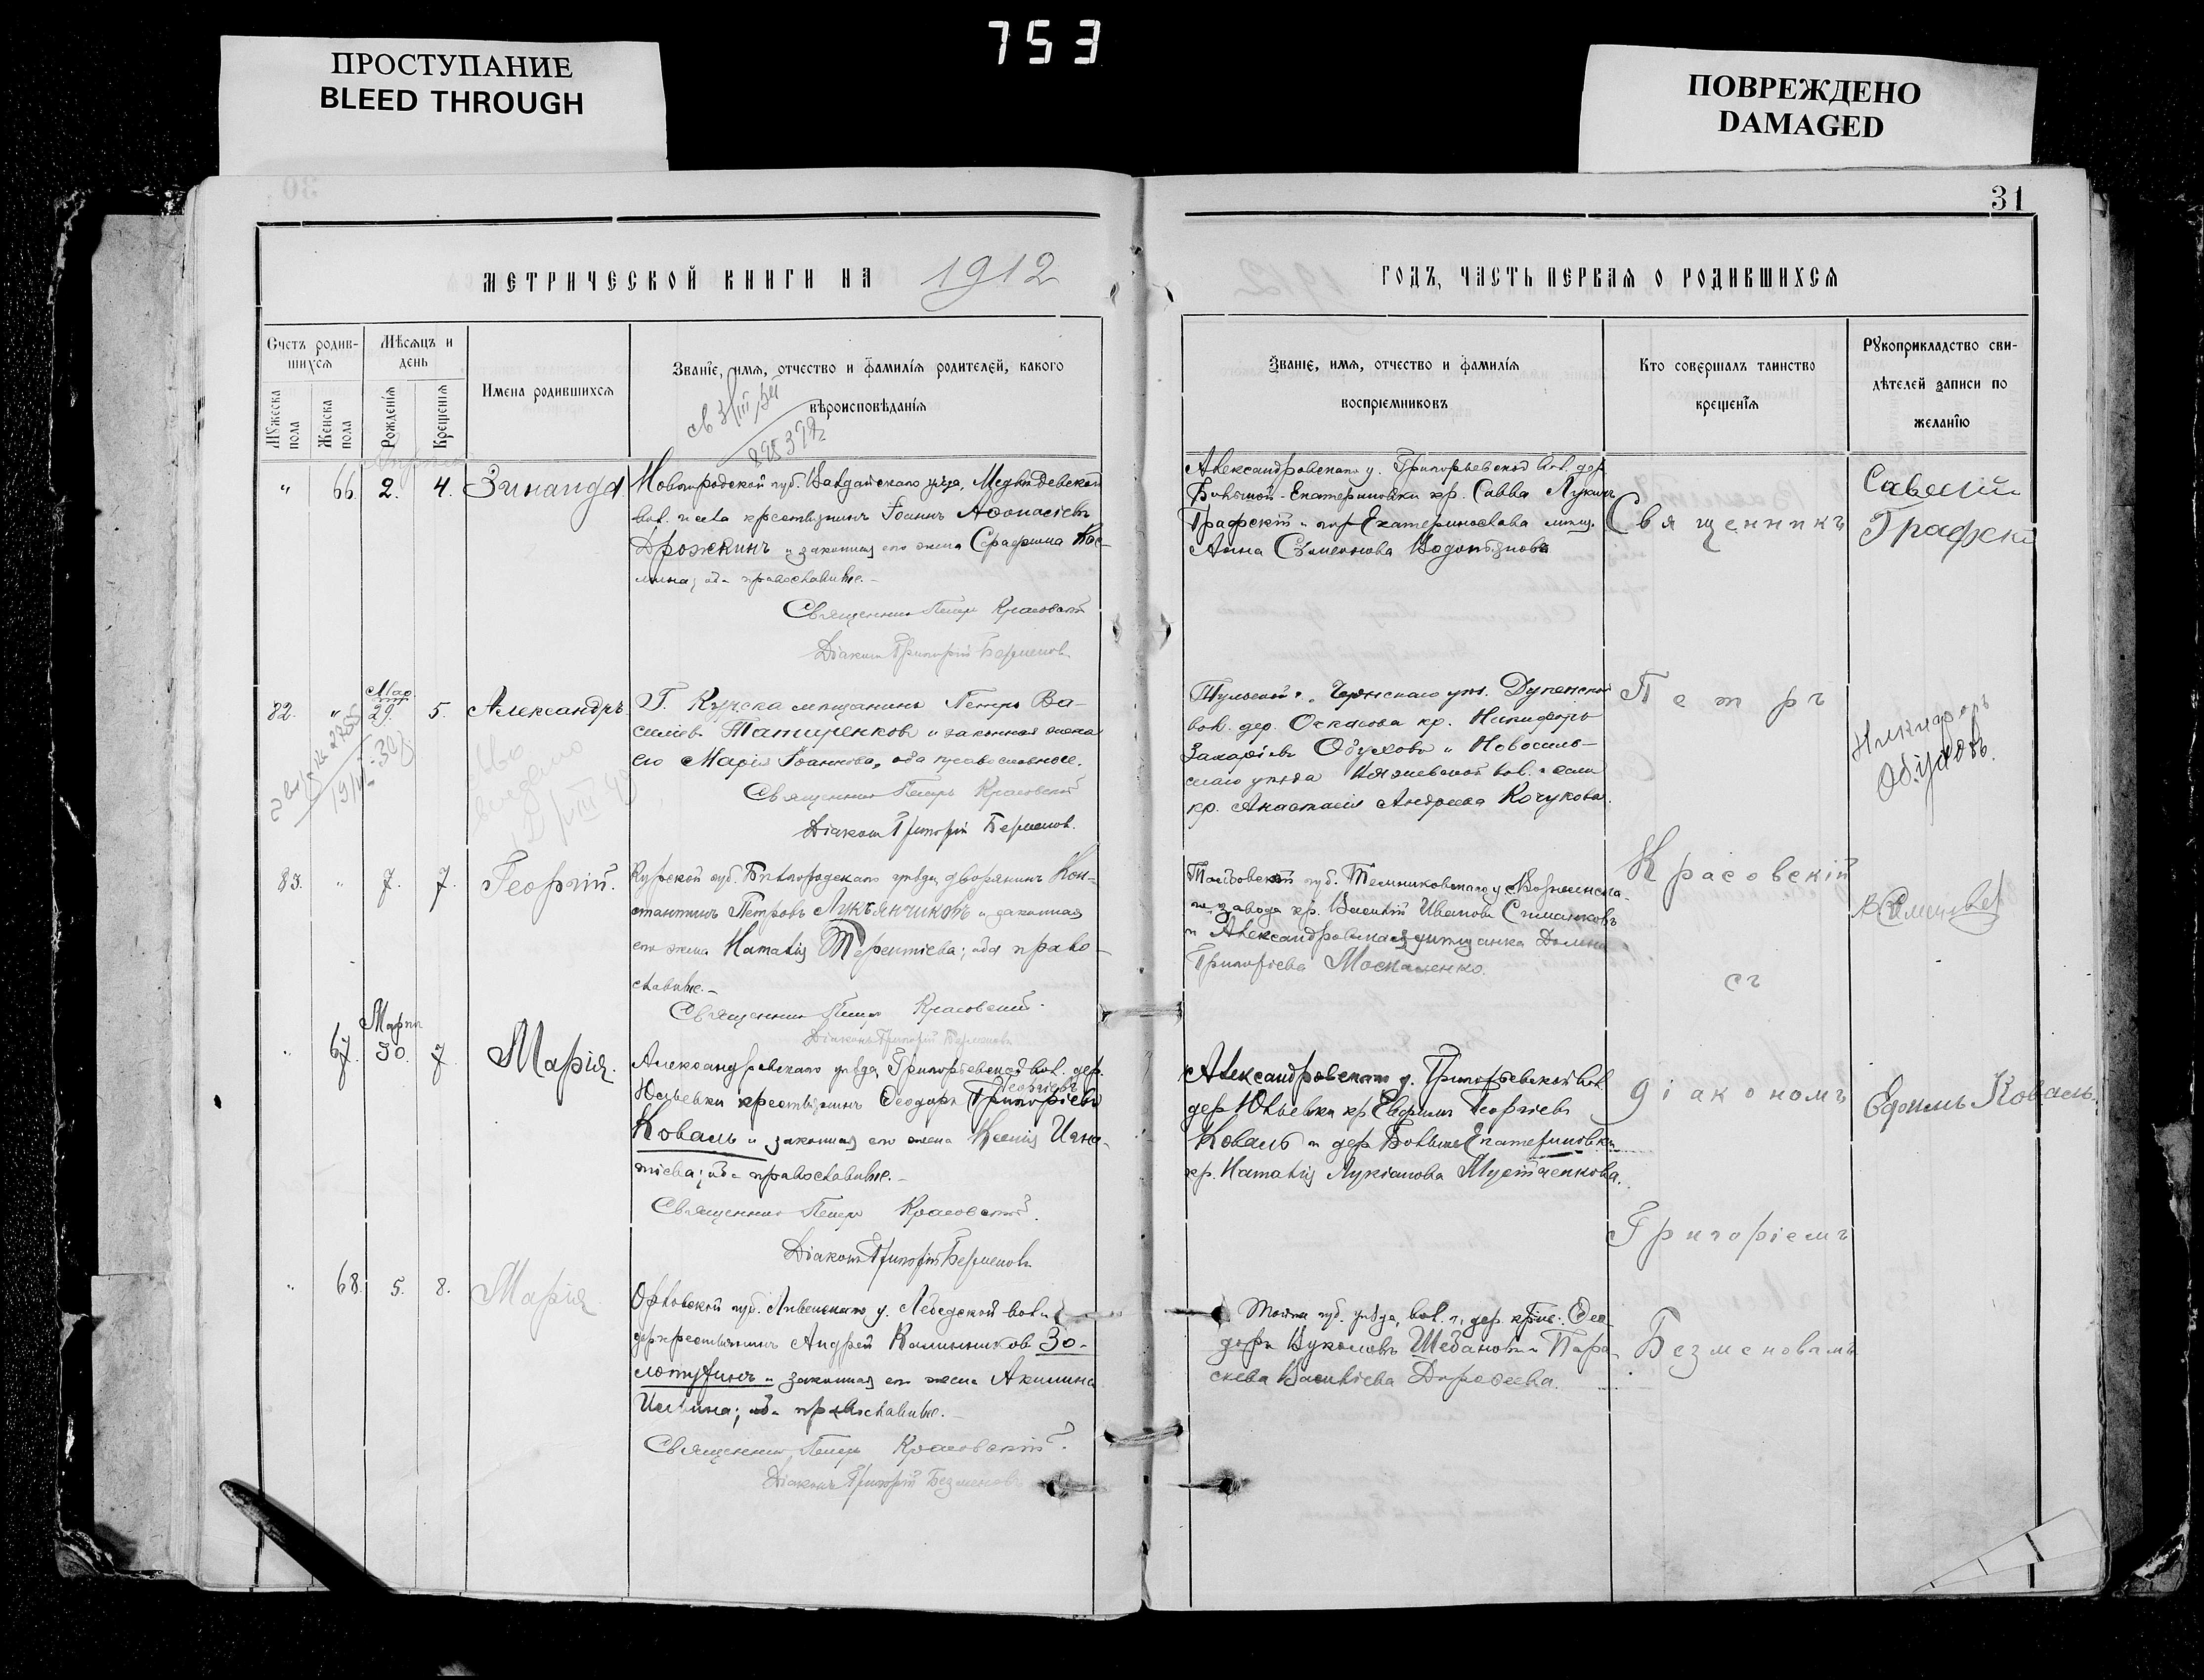 753
ПРОСТУПАНИЕ
BLEED THROUGH
ПОВРЕЖДЕНО
DAMAGED
31
МЕТРИЧЕСКОЙ КНИГИ НА 1912
ГОДЪ, ЧАСТЬ ПЕРВАЯ О РОДИВШИХСЯ
Счетъ родив-
шихся
Мужеска пола
Женска пола
Мѣсяцъ и
день
Рожденія
Крещенія
Имена родившихся
Званіе, имя, отчество и фамилія родителей, какого
вѣроисповѣданія
Званіе, имя, отчество и фамилія
воспріемниковъ
Кто совершалъ таинство
крещенія
Рукоприкладство сви-
дѣтелей записи по
желанію
66. 2. 4. Зинаида
Новгородской губ. Валдайскаго уѣзда, Медвѣдевской
вол. и села крестьянинъ Іоаннъ Аѳонасіевъ
Дрожжинъ и законная его жена Серафима Кос-
мина; оба православные.-
Священникъ Петръ Красовскій
Діаконъ Григорій Безменовъ
Александровскаго у. Григорьевской вол. дер.
Большой-Екатериновки кр. Савва Лукинъ
Графскій и гор. Екатеринослава мѣщ.
Анна Семенова Водопьянова
Савелій
Графскі
82. " Мар. 29. 5. Александръ
Г. Курска мѣщанинъ Петръ Ва-
силіевъ Татиренковъ и законная жена
его Марія Іоаннова, оба православные.
Священникъ Петръ Красовскій
Діаконъ Григорій Безменовъ.
Тульской г. Чернскаго уѣз.
вол. дер. кр. Никифоръ
Захаріевъ Обуховъ и Новосиль-
скаго уѣзда вол. и села
кр. Анастасія Андреева Кочукова.
Никифоръ
Обуховъ.
83. " 7. 7. Георгій.
Курской губ. Бѣлгородскаго уѣзда, дворянинъ Кон-
стантинъ Петровъ Лукъянчиковъ и законная
его жена Наталія Терентіева; оба право-
славные.-
Священникъ Петръ Красовскій.
Діаконъ Григорій Безменовъ
Тамбовской губ. Темниковскаго у.
завода кр. Василій Ивановъ Симанковъ
и Александровская мѣщанка
Григоріева Москаленко.
" 67. Марта 30. 7. Марія.
Александровскаго уѣзда, Григорьевской вол. дер.
Юльевки крестьянинъ Ѳеодоръ Георгіевъ Григоріевъ
Коваль и законная его жена Ксенія Игна-
тіева; оба православные.-
Священникъ Петръ Красовскій.
Діаконъ Григорій Безменовъ
Александровскаго у. Григорьевской вол.
дер. Юльевки кр. Евфимъ Георгіевъ
Коваль и дер. Больше Екатериновки
кр. Наталія Лукіанова
Ефимъ Коваль.
" 68. 5. 8. Марія
Орловской губ. Ливенскаго у. Лебедской вол. и
дер. крестьянинъ Андрей Калинниковъ Зо-
лотухинъ и законная его жена Акилина
Ильина; оба православные.-
Священникъ Петръ Красовскій.
Діаконъ Григорій Безменовъ
Той же губ. уѣзда, вол. и дер. кр-не: Ѳео-
доръ Вуколовъ Шебановъ и Пара-
скева Василіева Дорофеева.
Священникъ
Петръ
Красовскій
съ
діакономъ
Григоріемъ
Безменовымъ